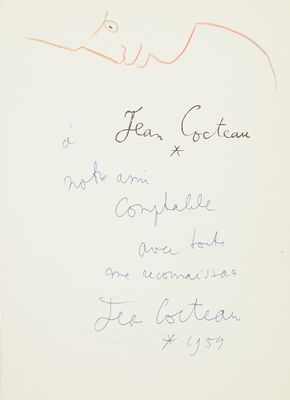 Jean Cocteau
*
à
notre ami
Comptable
avec toute
ma reconnaissance
Jean Cocteau
* 1959